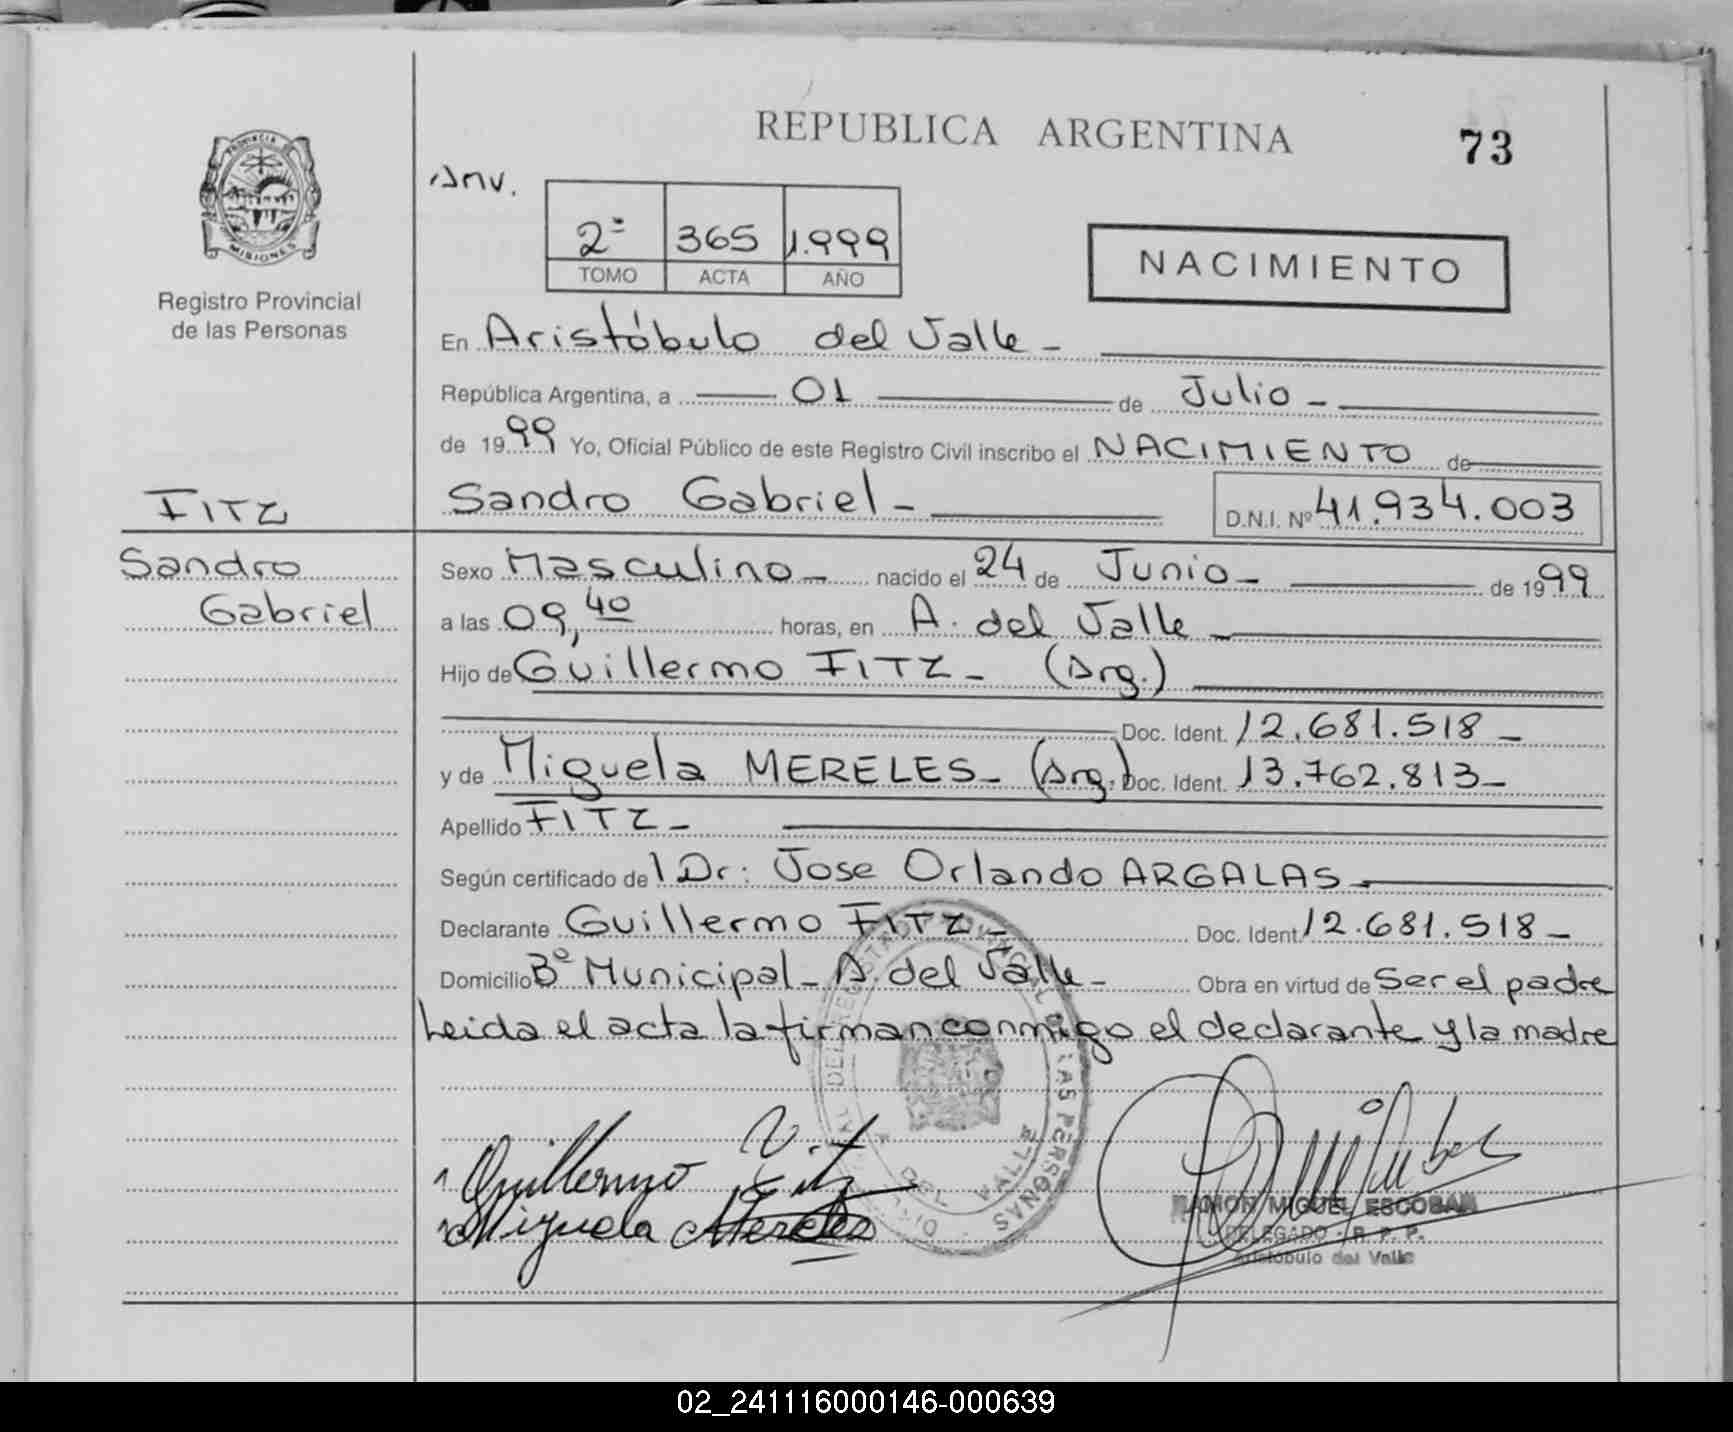 REPUBLICA ARGENTINA
73
PROVINCIA DE
MISIONES
Registro Provincial
de las Personas
Anv.
2º 365 1.999
TOMO ACTA AÑO
NACIMIENTO
En Aristóbulo del Valle -
República Argentina, a 01 de Julio -
de 1999 Yo, Oficial Público de este Registro Civil inscribo el NACIMIENTO de
FITZ
Sandro Gabriel - D.N.I. Nº 41.934.003
Sandro
Gabriel
Sexo Masculino - nacido el 24 de Junio - de 1999
a las 09,40 horas, en A. del Valle -
Hijo de Guillermo FITZ - (Arg.)
Doc. Ident. 12.681.518 -
y de Miguela MERELES - (Arg.) Doc. Ident. 13.762.813 -
Apellido FITZ -
Según certificado del Dr: Jose Orlando ARGALAS -
Declarante Guillermo FITZ - Doc. Ident. 12.681.518 -
Domicilio Bº Municipal - A. del Valle - Obra en virtud de Ser el padre
Leida el acta la firman conmigo el declarante y la madre
Guillermo Fitz
Miguela Mereles
RAMON MIGUEL ESCOBAR
DELEGADO - R. P. P.
Aristóbulo del Valle
02_241116000146-000639